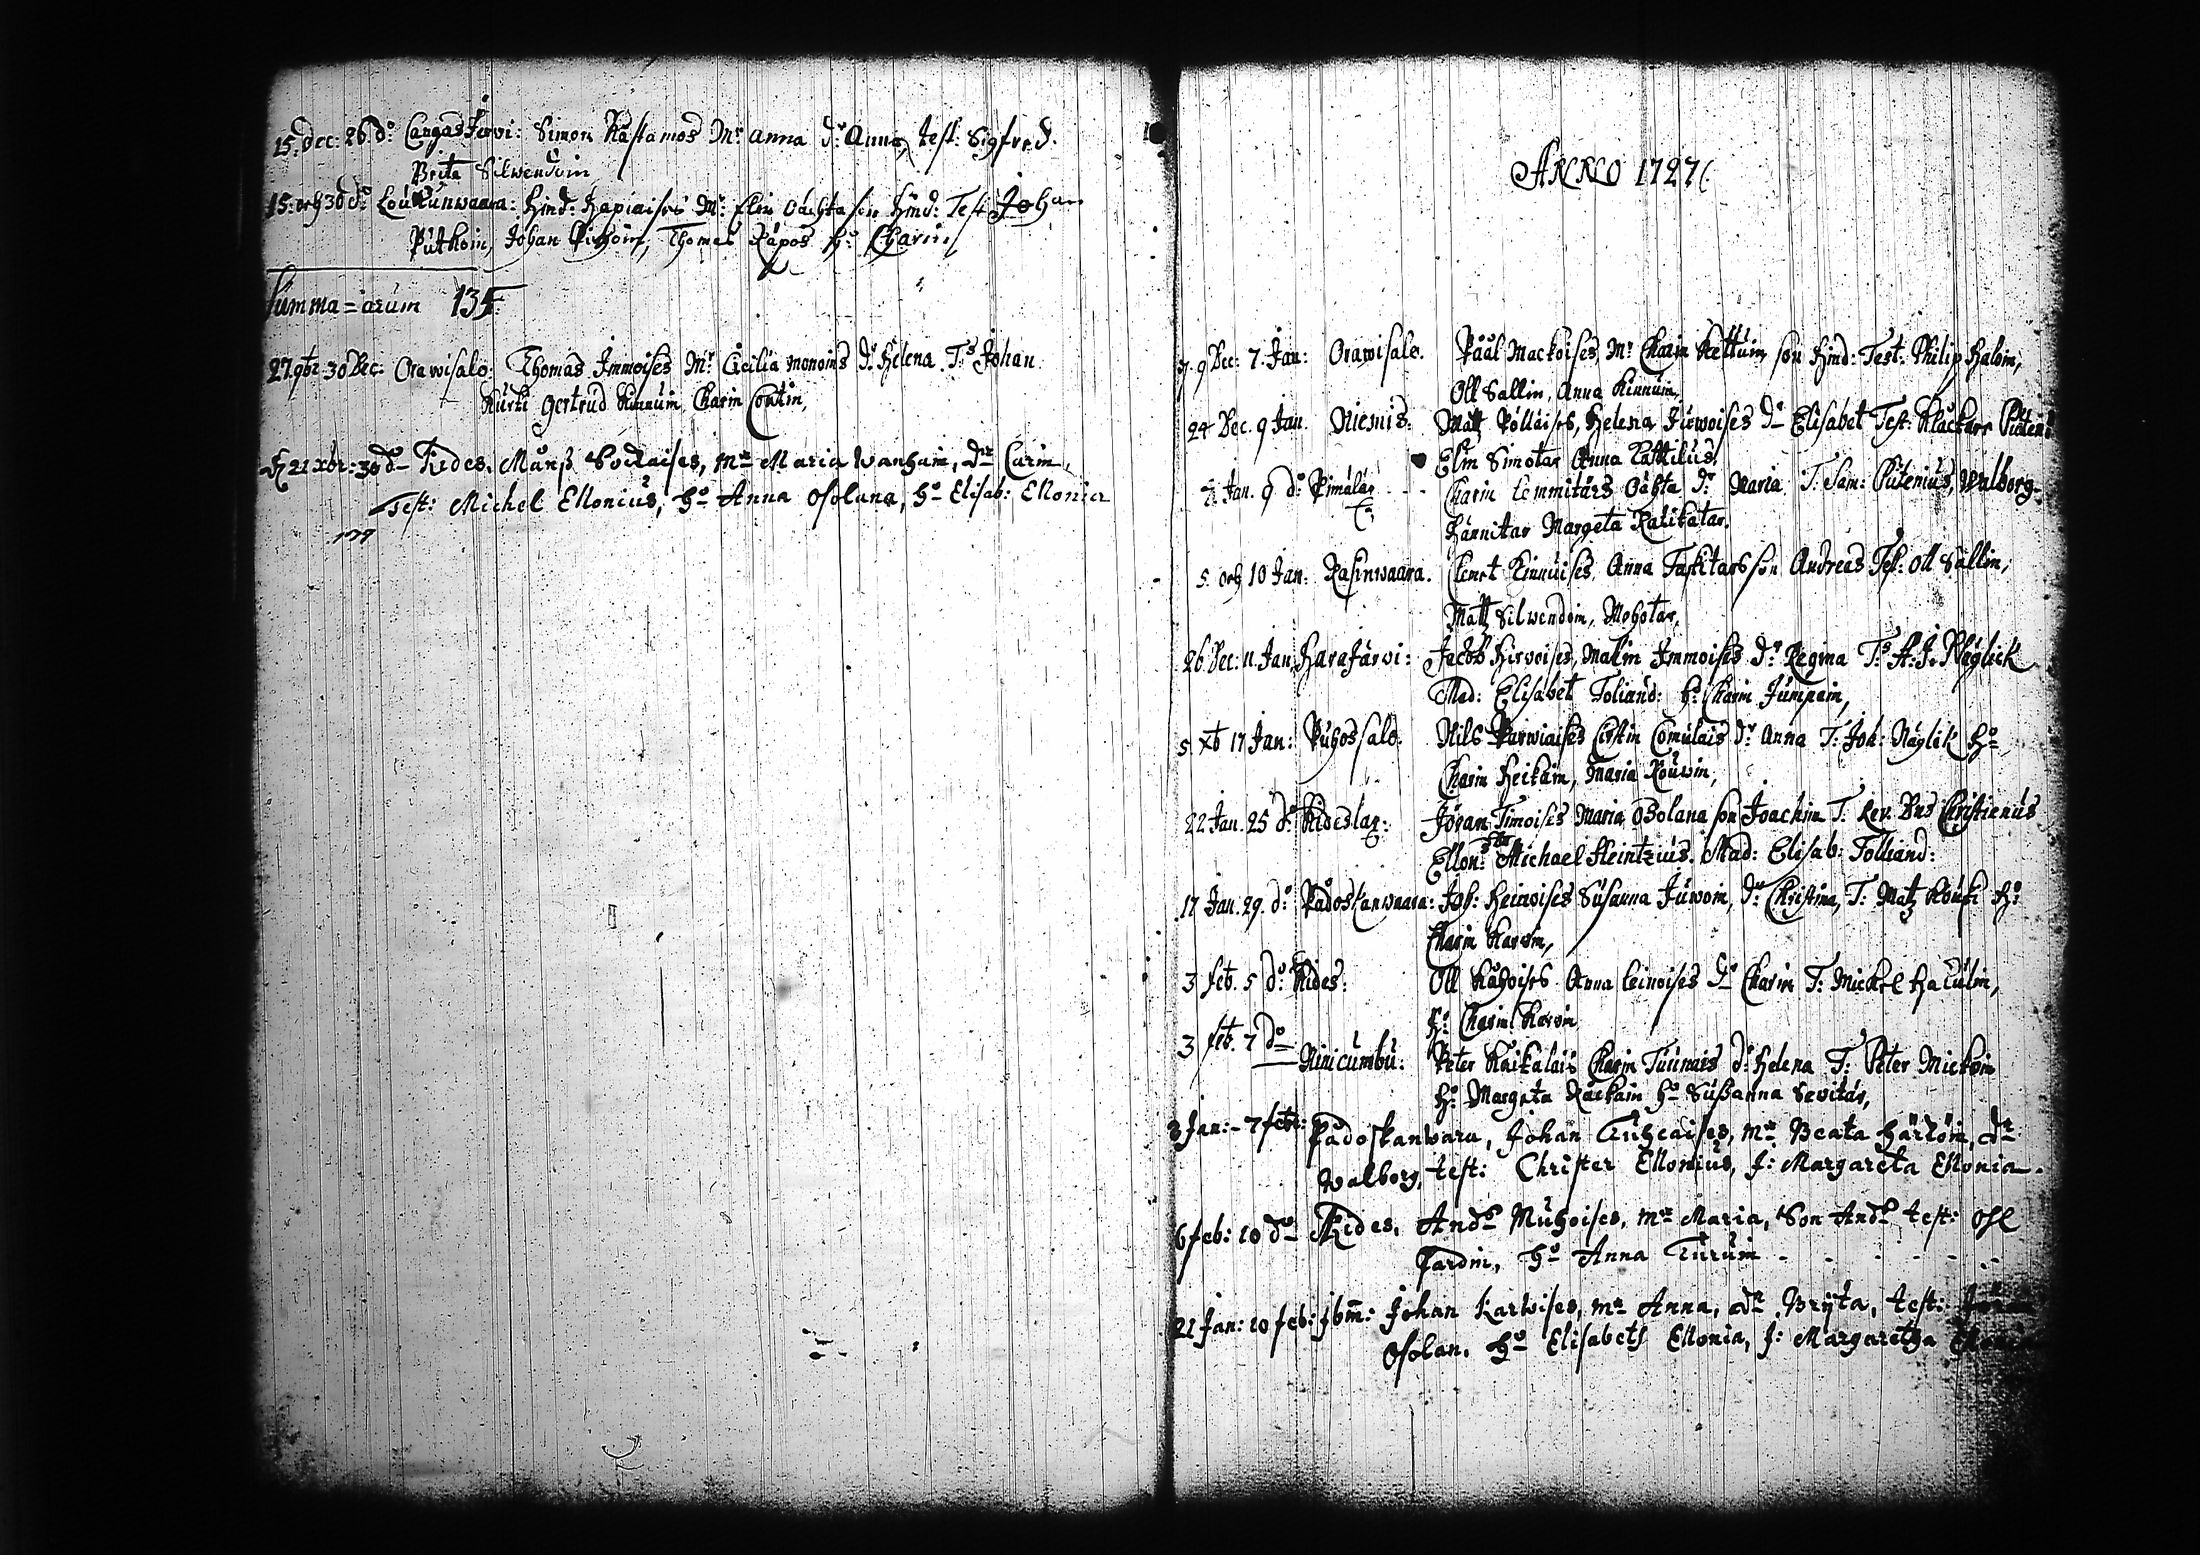 15. Dec: 26. do Cangasjerwi: Simon Kåstamos Mr Anna dr Anna, test: Sigfred.
Brita Silwendoin
15: 30 do Louckunwaara: Hind: Hapiaises Mr: Elin son Hind: Test Johan
Putkoin, Johan Thomas Råpos ho Charin
Summa=arum 135.
27. 9br 30 Dec. Orawisalo. Thomas Immoises Mr Cicilia monoins dr Helena. Ts Johan
Kurki Gertrud Kinnuin Charin Contin,
21 xbr: 30 do Kides. Månß Sockaises, mr Maria Wanhain, dr Carin,
Test: Michel Ellonius, ho Anna Osolana, ho Elisab: Ellonia
139
ANNO 1727
9 Dec: 7. Jan: Orawisalo. Påål Mackoises, Mr Charin Kettuin son Hind: Test: Philip Haloin,
Oll Sallin, Anna Kinnuin,
24 Dec. 9 Jan. Niemis. Matt Pölläises, Helena Juwoises dr Elisabet Test: Klåckare
Elin Simotar Anna
Jan. 9 do Pimälax Charin Lemmitärs Oächta dr Maria T: Sam: Putenius, Walborg
Margeta Ratikatar.
5 10 Jan: Rasinwaara. Clemet Kinnuises Anna Taskitars son Andreas Test: Oll Sallin,
Matz Silwendoin, Mohotar,
26 Dec: 11. Jan. Harajärwi: Jacob Hirwoises, Malin Immoises dr Regina Ts A: J. Näglick
Mad: Elisabet Toliand: ho Charin Jumpain,
5 xb 17 Jan: Puhossalo. Nils Parwiaises Cirstin Comulais dr Anna T: Joh: Näglik ho
Charin Heikäin, Maria Rouwin,
22 Jan. 25 do Kideslax: Jöran Timoises Maria Osolana son Joachim T. Rev. Dns Christiernus
Ellon: Michael Heintzius. Mad: Elisab: Tolliand:
17 Jan. 29. do Padoskanwaara: Joh: Heinoises Susanna Juwoin, dr Christina, T: Matz ho
Charin Karoin,
3 feb. 5 do Kides: Oll Kåhoises Anna Leinoises dr Charin T: Mickel Haculin,
ho Charin Karoin
3 feb. 7 do Ninicumbu: Peter Kaikalais Charin Tuunais dr Helena T: Peter Mickoin
ho Margeta Räckäin ho Sußanna Sevitär,
3 Jan:- 7 febr: Padoskanwara, Johan Tuhcaises, mr Beata Härköin, dr
Walborg, test: Christer Ellonius, J: Margareta Ellonia.
6 feb: 10 do Kides. Andr Muhoises, mr Maria, Son Andr test:
Pardin, ho Anna Turuin - - - - -
21 Jan: 10 feb: Johan Karwises, mr Anna, dr Brÿta, test:
Osolan. ho Elisabeth Ellonia, J: Margaretha